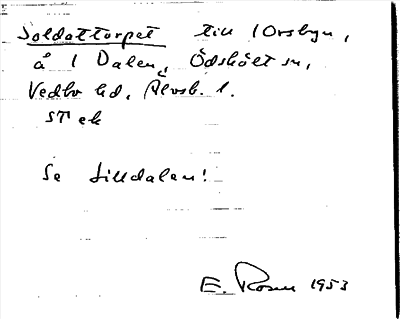 Soldattorpet till 1 Orsbyn,
å 1 Dalen, Ödskölt sn,
Vedbo hd, Älvsb. l.
STek
Se Lilldalen!
E. Rosen 1953